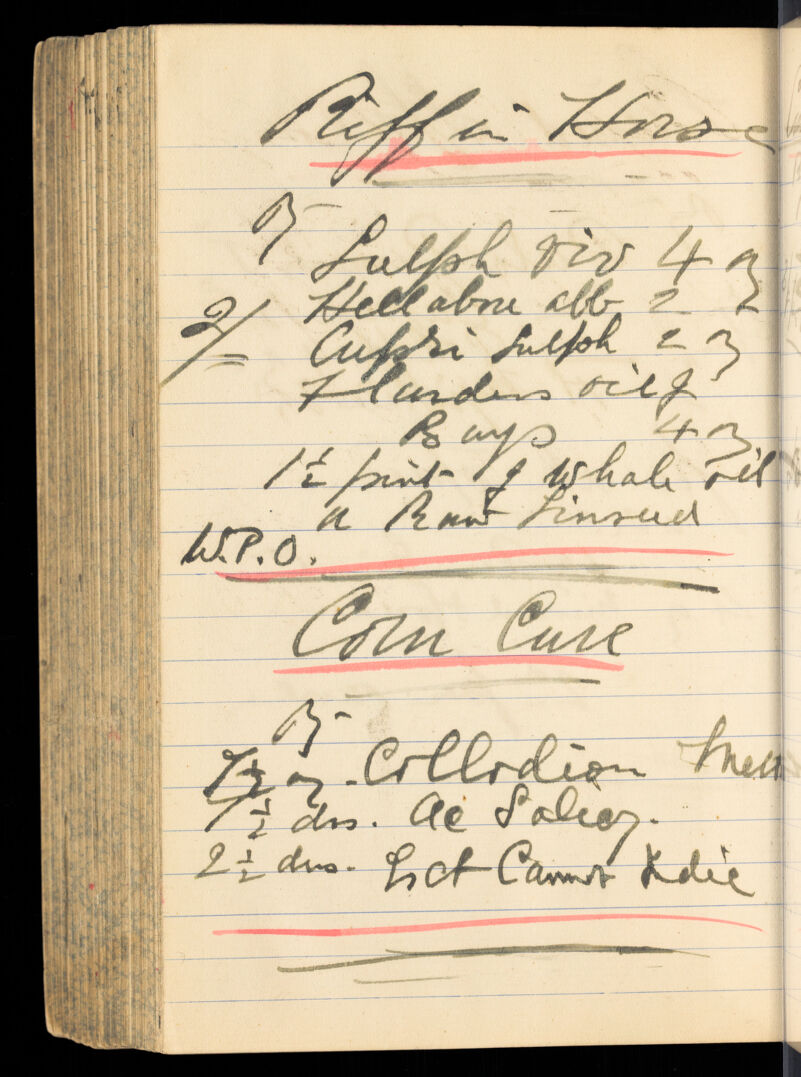 Riff in Horse
Rx
Sulph Viv 4 oz
2/= Hellabore alb 2 "
Cupri Sulph 2 oz
Flanders oil of
Bays 4 oz
1½ pint of Whale oil
a Raw Linseed
W.P.O.
Corn Cure
Rx
oz. Collodion
7½ drs. Ac Salicy.
2½ drs. Ext Cannab